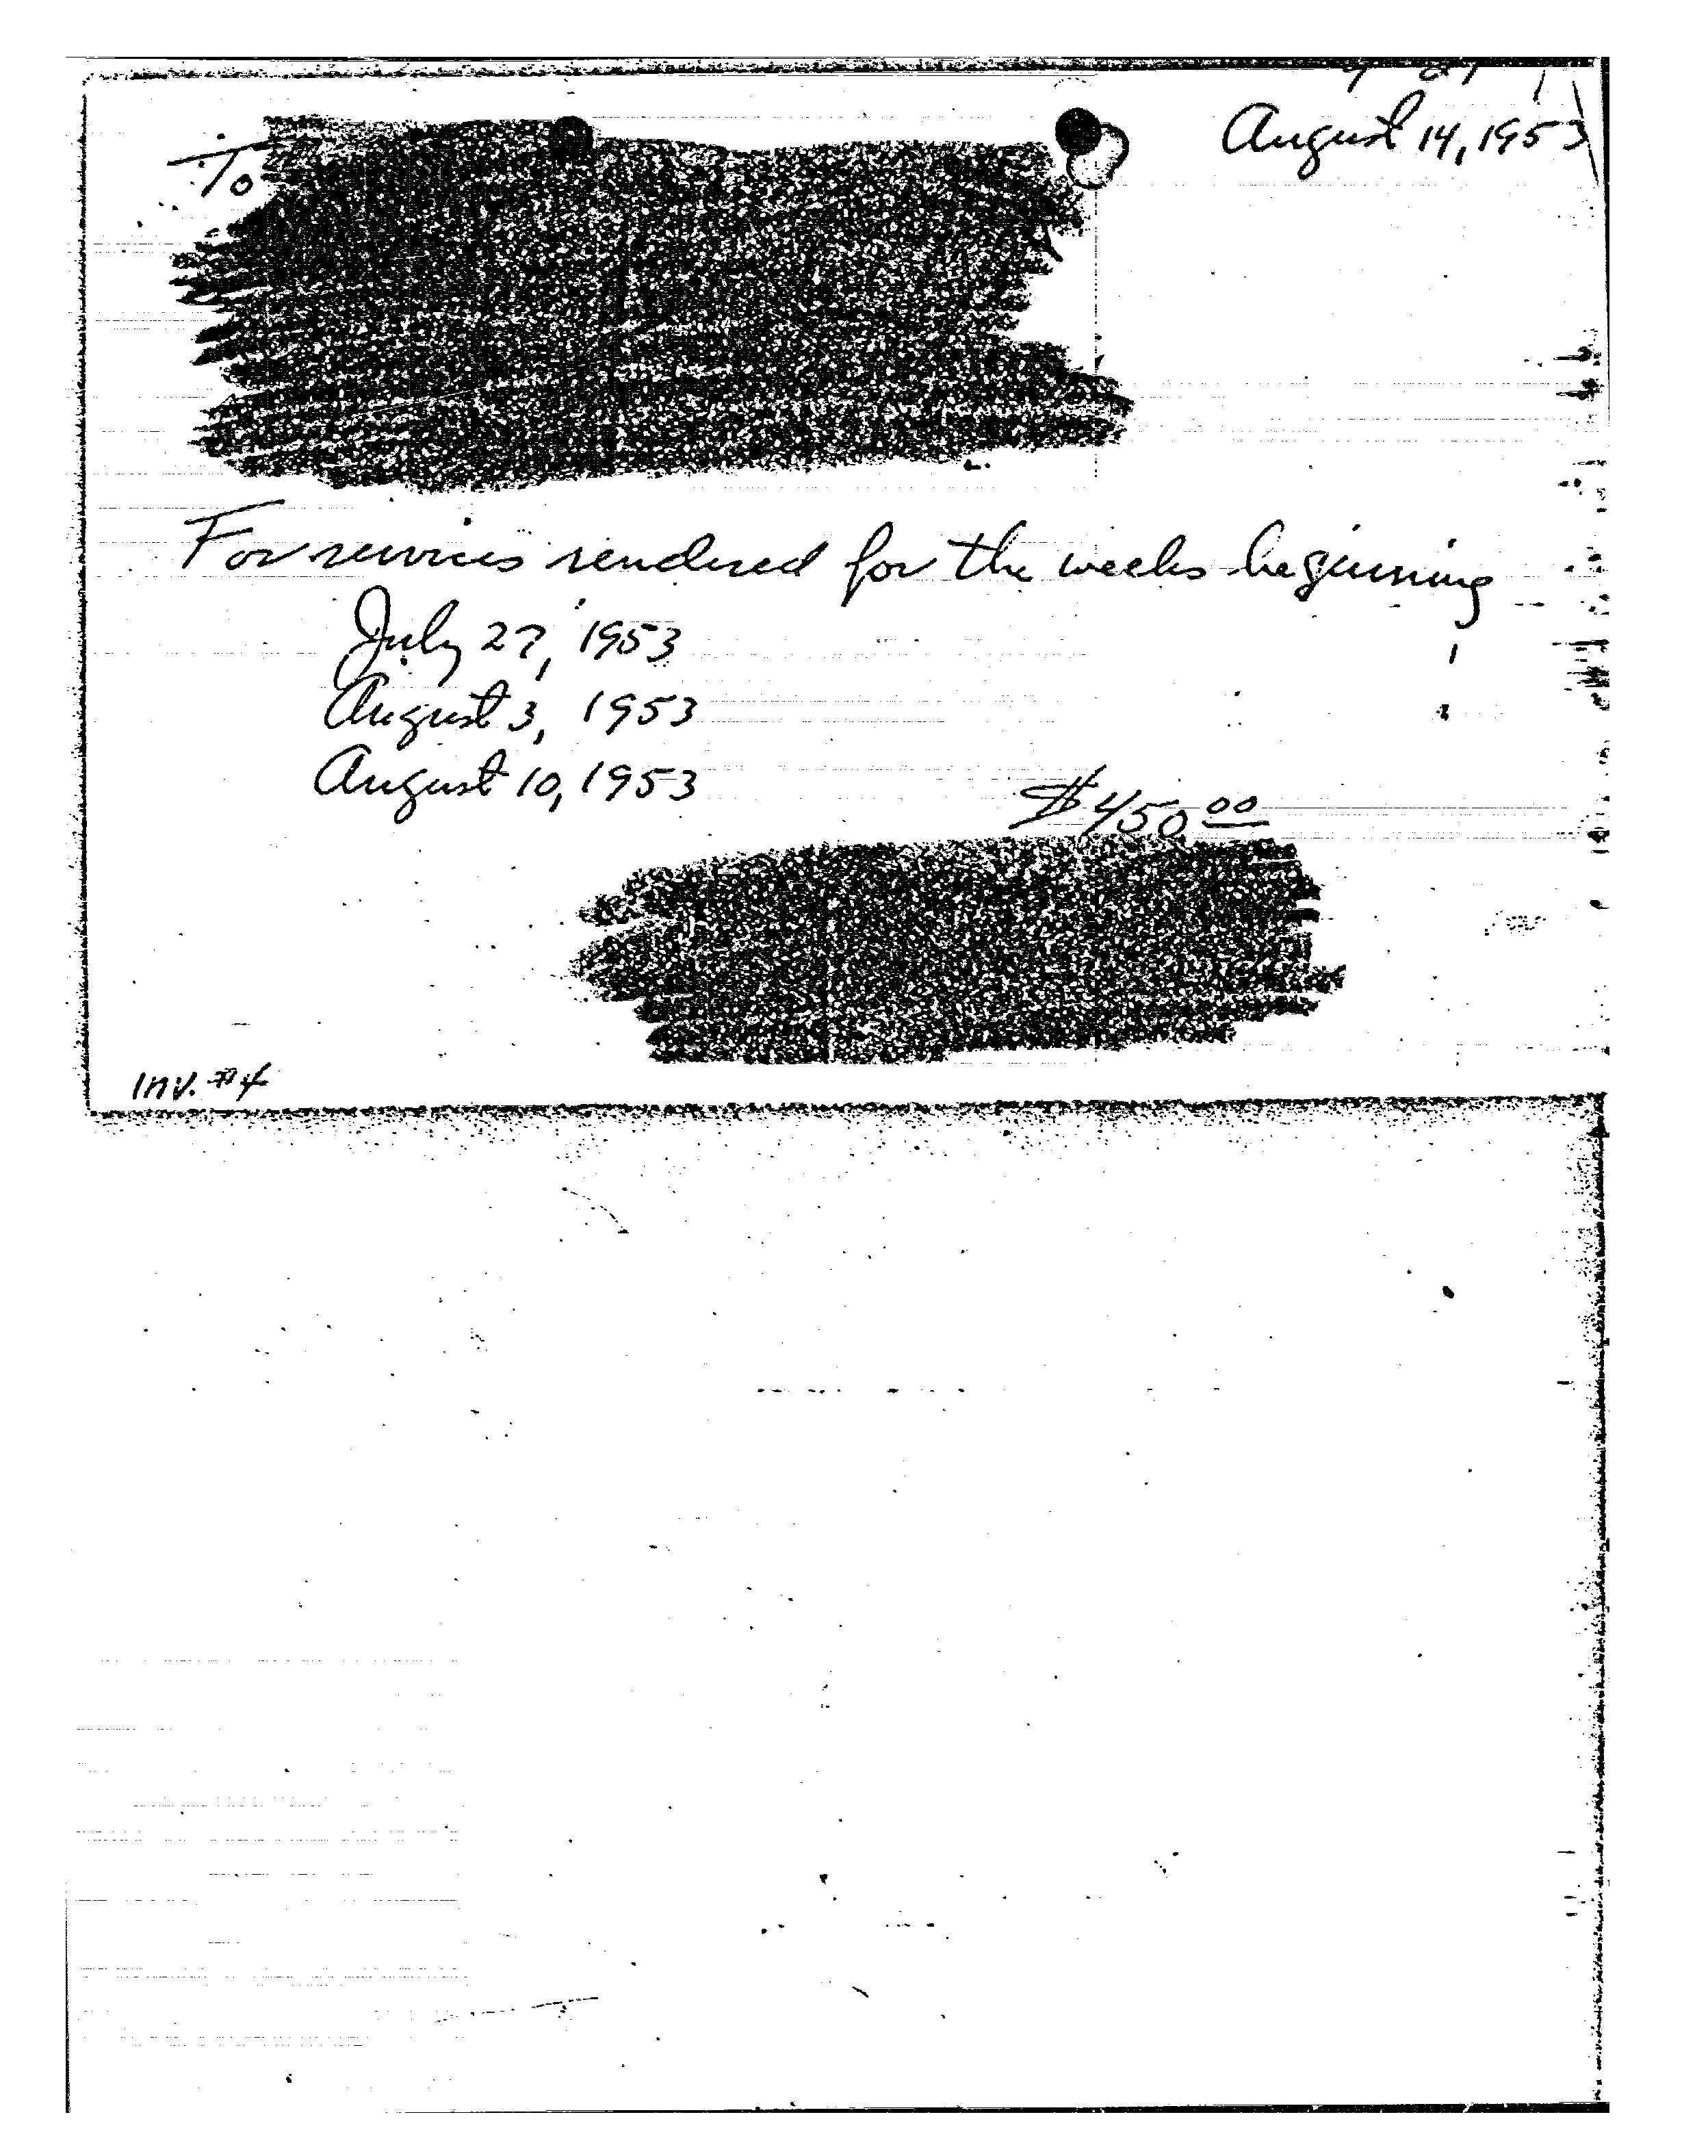 August 14, 1953
To
For services rendered for the weeks beginning
July 27, 1953
August 3, 1953
August 10, 1953
$450 00
Inv. #4